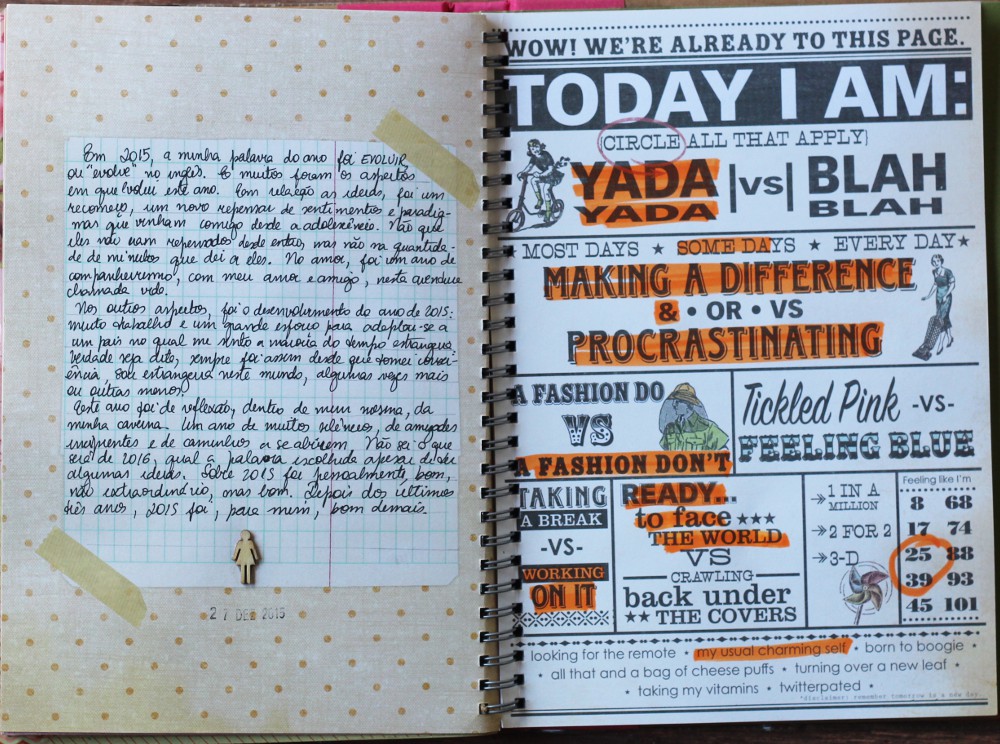 Em 2015, a minha palavra do ano foi EVOLUIR
ou "evolve" no inglês. E muitos foram os aspectos
em que evoluí este ano. Com relação as ideias, foi um
recomeço, um novo repensar de sentimentos e paradig-
mas que vinham comigo desde a adolescência. Não que
eles não eram repensados desde então, mas não na quantida-
de de minutos que dei a eles. No amor, foi um ano de
companheirismo, com meu amor e amigo, nesta aventura
chamada vida.
Nos outros aspectos, foi o desenvolvimento do ano de 2015:
muito trabalho e um grande esforço para adaptar-se a
um país no qual me sinto a maioria do tempo estrangeira.
Verdade seja dita, sempre foi assim desde que tomei consci-
ência. Sou estrangeira neste mundo, algumas vezes mais
ou outras menos.
Este ano foi de reflexão, dentro de mim mesma, da
minha caverna. Um ano de muitos silêncios, de amizades
incipientes e de caminhos a se abrirem. Não sei o que
será de 2016, qual a palavra escolhida apesar de ter
algumas ideias. Sobre 2015 foi pessoalmente, bom,
não extraordinário, mas bom. Depois dos últimos
três anos, 2015 foi, para mim, bom demais.
27 DEZ 2015
WOW! WE'RE ALREADY TO THIS PAGE.
TODAY I AM:
{CIRCLE ALL THAT APPLY}
YADA YADA |vs| BLAH BLAH
MOST DAYS ★ SOME DAYS ★ EVERY DAY ★
MAKING A DIFFERENCE
& • OR • VS
PROCRASTINATING
A FASHION DO
VS
A FASHION DON'T
Tickled Pink -VS-
FEELING BLUE
TAKING
A BREAK
-VS-
WORKING
ON IT
READY...
to face ★★★
THE WORLD
VS
CRAWLING
back under
★★ THE COVERS
1 IN A
MILLION
2 FOR 2
3-D
Feeling like I'm
8 68
17 74
25 88
39 93
45 101
looking for the remote • my usual charming self • born to boogie •
• all that and a bag of cheese puffs • turning over a new leaf •
• taking my vitamins • twitterpated •
*disclaimer: remember tomorrow is a new day.